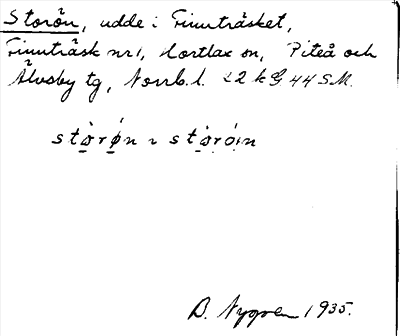 Storön, udde i Finnträsket,
Finnträsk nr 1, Hortlax sn, Piteå och
Älvsby tg, Norrb. l. 22 k G 44 SM.
B. Nygren 1935.